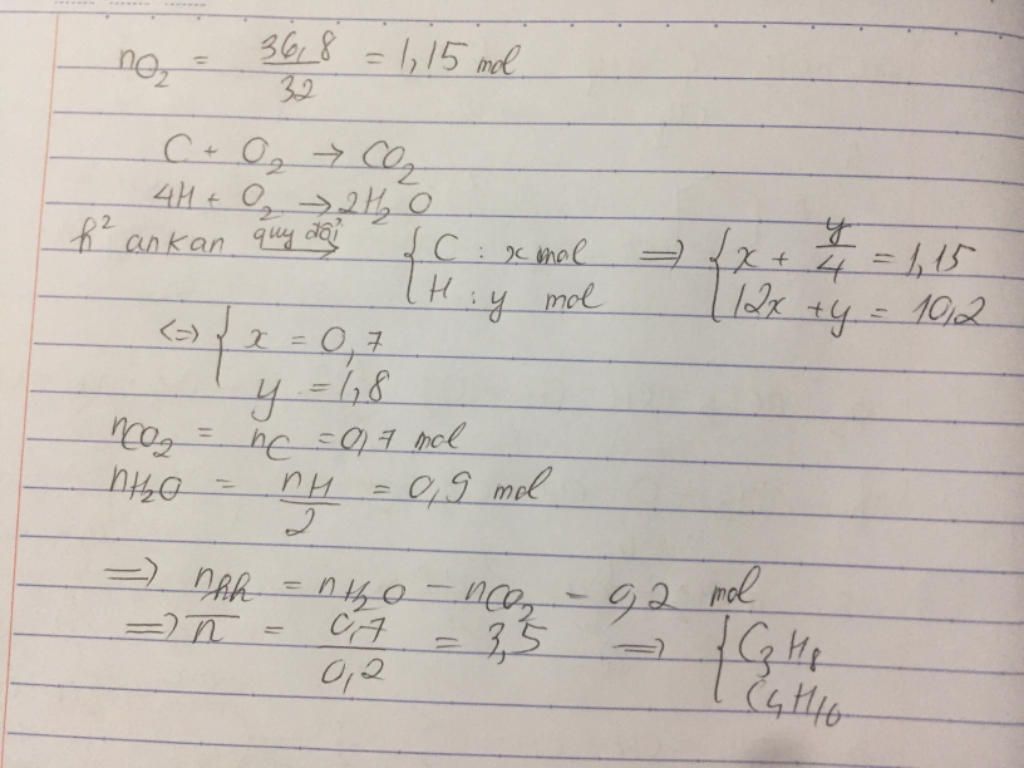 nO₂ = 36,8/32 = 1,15 mol
C + O₂ → CO₂
4H + O₂ → 2H₂O
h² ankan quy đổi→ { C : x mol ⇒ { x + y/4 = 1,15
H : y mol 12x + y = 10,2
<=> { x = 0,7
y = 1,8
nCO₂ = nC = 0,7 mol
nH₂O = nH/2 = 0,9 mol
=> nhh = nH₂O - nCO₂ - 0,2 mol
=> n̅ = 0,7/0,2 = 3,5 => { C₃H₈
C₄H₁₀